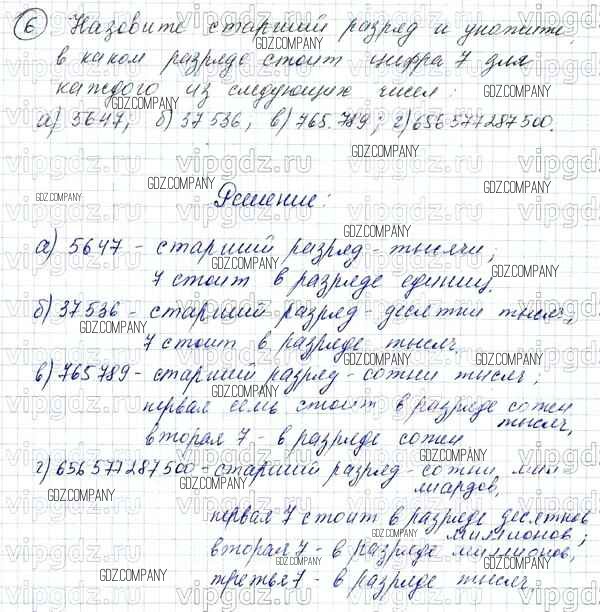 6 Назовите старший разряд и укажите,
в каком разряде стоит цифра 7 для
каждого из следующих чисел:
а) 5647, б) 37536, в) 765.789; г) 656577287500.
Решение:
а) 5647 - старший разряд - тысячи;
7 стоит в разряде единиц.
б) 37536 - старший разряд - десятки тысяч,
7 стоит в разряде тысяч.
в) 765789 - старший разряд - сотни тысяч;
первая семь стоит в разряде сотен
тысяч,
вторая 7 - в разряде сотен
г) 656577287500 - старший разряд - сотни мил-
лиардов,
первая 7 стоит в разряде десятков
миллионов;
вторая 7 - в разряде миллионов,
третья 7 - в разряде тысяч.
GDZ.COMPANY
vipgdz.ru